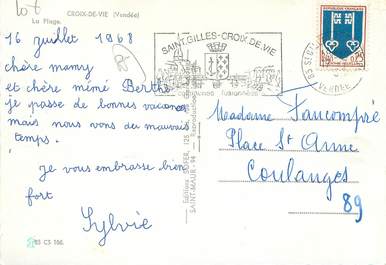 lot
CROIX-DE-VIE (Vendée)
La Plage.
16 juillet 1968
chère mamy
et chère mémé Berthe
je passe de bonnes vacances
mais nous vons du mauvais
temps.
Je vous embrasse bien
fort
Sylvie
85 CS 106.
SAINT.GILLES-CROIX.DE.VIE
communes fusionnées
RÉPUBLIQUE FRANÇAISE
0,25
VENDÉE
SAINT-MAUR - 94
Madame Faucompré
Place St Anne
Coulanges
89